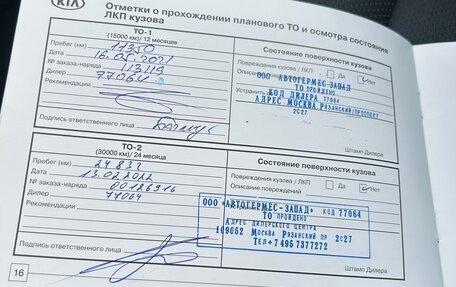 KIA
Отметки о прохождении планового ТО и осмотра состояния
ЛКП кузова
ТО-1
(15000 км)/ 12 месяцев
Пробег (км) 11350
Дата 16.05.2021
№ заказа-наряда
Дилер 77064
Рекомендации
Подпись ответственного лица
Состояние поверхности кузова
Повреждения кузова / ЛКП Да Нет
Описание
Устранить
ООО АВТОГЕРМЕС-ЗАПАД
ТО ПРОЙДЕНО
КОД ДИЛЕРА 77064
АДРЕС МОСКВА, РЯЗАНСКИЙ/ПРОСПЕКТ
2С27
Штамп Дилера
ТО-2
(30000 км)/ 24 месяца
Пробег (км) 24837
Дата 13.02.2022
№ заказа-наряда 00126916
Дилер 77064
Рекомендации
Подпись ответственного лица
Состояние поверхности кузова
Повреждения кузова / ЛКП Да Нет
Описание повреждений
ООО «АВТОГЕРМЕС-ЗАПАД» КОД 77064
ТО ПРОЙДЕНО
АДРЕС ДИЛЕРСКОГО ЦЕНТРА
109052 МОСКВА РЯЗАНСКИЙ ПР 2С27
ТЕЛ +7 495 7377272
Штамп Дилера
16